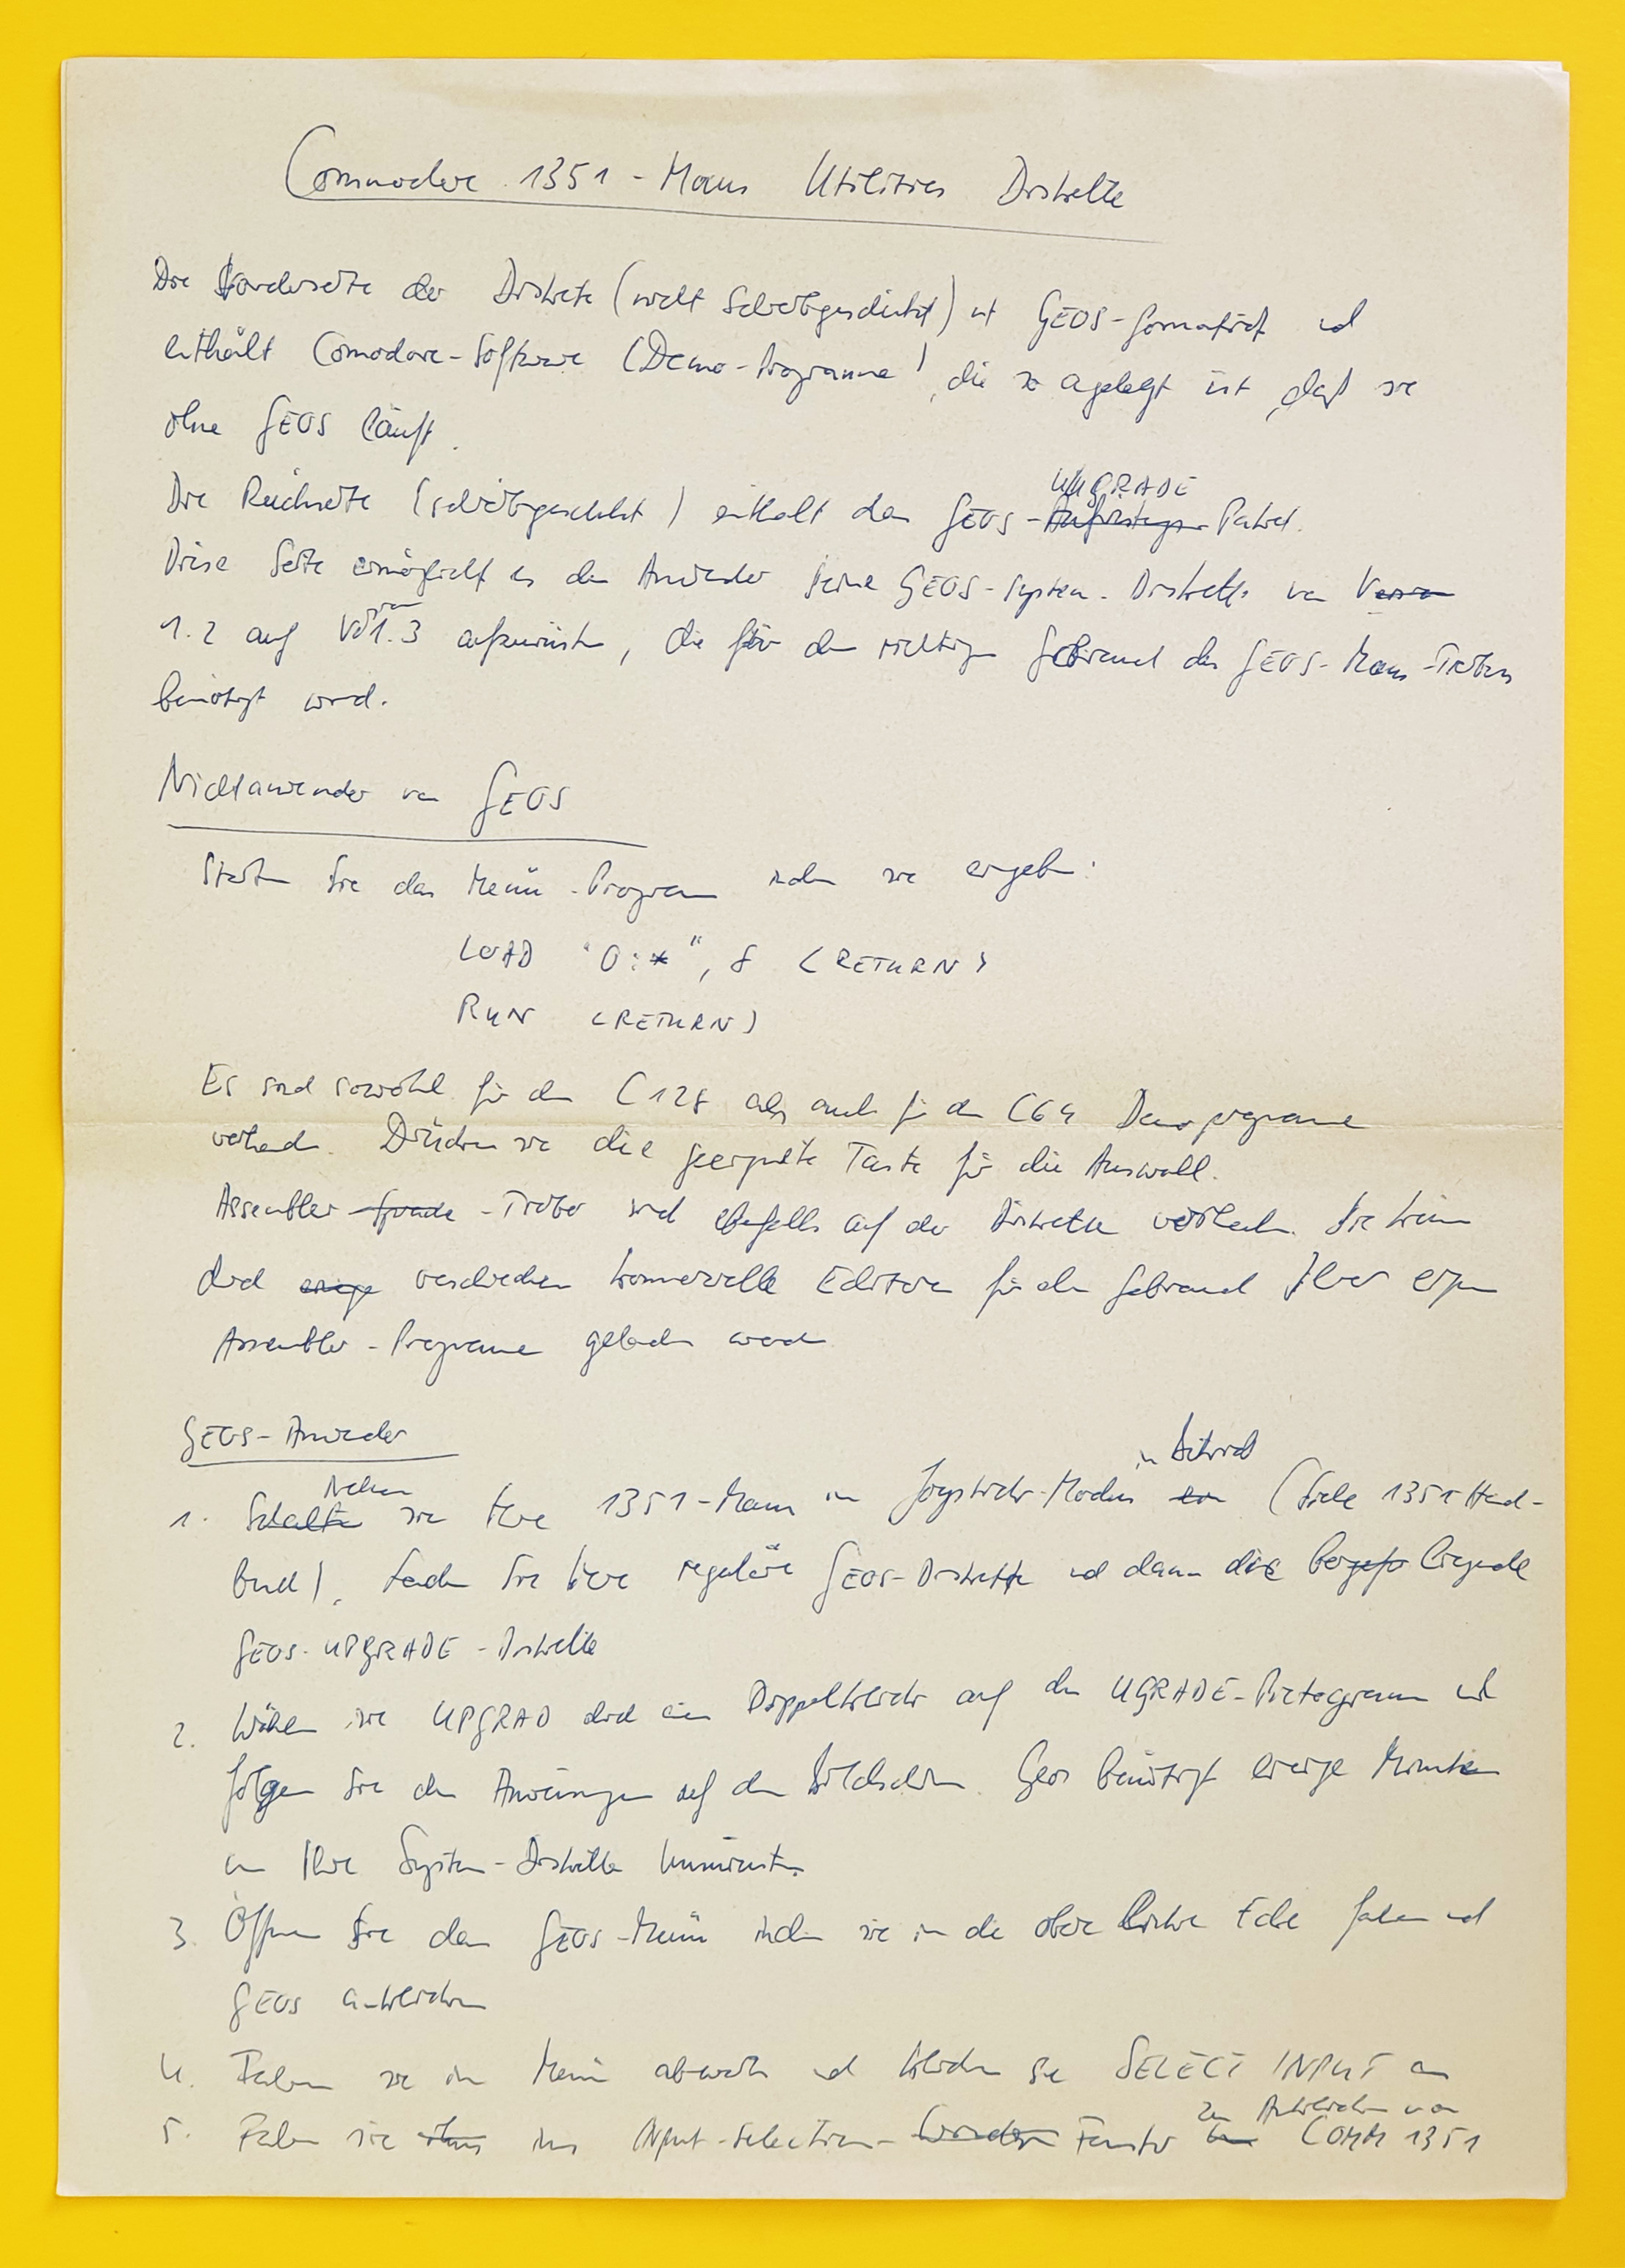 Commodore 1351-Maus Utilities Diskette
Die Vorderseite der Diskette (nicht Schreibgeschützt) ist GEOS-formatiert und
enthält Comodore-Software (Demo-Programme), die so angelegt ist, daß sie
ohne GEOS läuft.
UPGRADE
Die Rückseite (schreibgeschützt) enthält das GEOS- Paket.
Diese Seite ermöglicht es dem Anwender seine GEOS-System-Diskette von Version
1.2 auf Version 1.3 aufzurüsten, die für den richtigen Gebrauch des GEOS-Maus-Treibers
benötigt wird.
Nichtanwender von GEOS
Starten Sie das Menü-Programm indem sie eingeben:
LOAD "0:*", 8 <RETURN>
RUN <RETURN>
Es sind sowohl für den C128 als auch für den C64 Demoprogramme
vorhanden. Drücken sie die geeignete Taste für die Auswahl.
Assembler -Treiber sind ebenfalls auf der Diskette vorhanden. Sie können
durch einige verschiedene kommerzielle Editoren für den Gebrauch Ihrer eigenen
Assembler-Programme geladen werden
GEOS-Anwender
Nehmen in Betrieb
1. Schalten sie Ihre 1351-Maus im Joystick-Modus ein (siehe 1351 Hand-
buch). Laden Sie Ihre reguläre GEOS-Diskette und dann die beiliegende
GEOS-UPGRADE-Diskette
2. Wählen sie UPGRAD durch ein Doppelklick auf das UGRADE-Pictogramm und
folgen Sie den Anweisungen auf dem Bildschirm. Geos benötigt einige Minuten
um Ihre System-Diskette umzurüsten.
3. Öffnen Sie das GEOS-Menü indem sie in die obere linke Ecke fahren und
GEOS anklicken
4. Fahren sie im Menü abwärts und klicken Sie SELECT INPUT an
zum Anklicken von
5. Fahren sie ins Input-Selection- Window Fenster COMM 1351